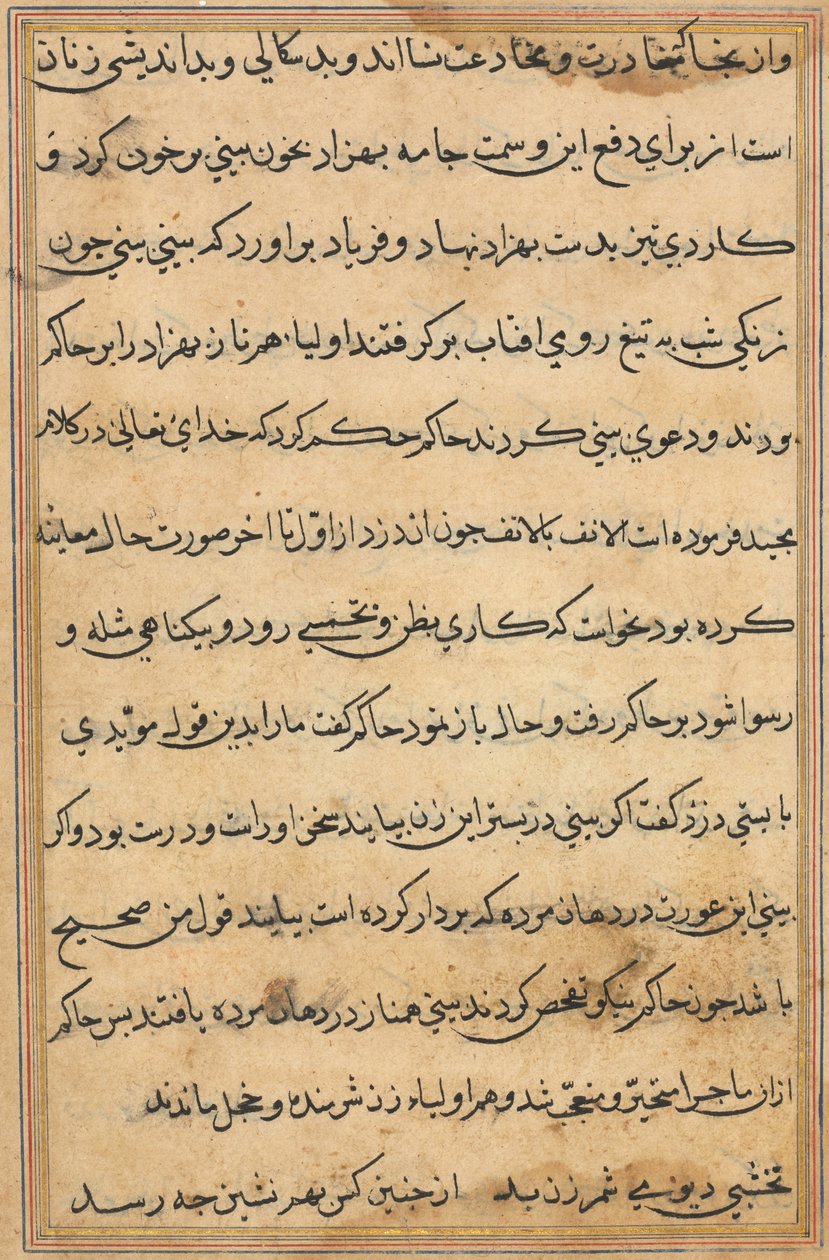 و از بخا کمغادرت و مخادعت نسا اند و بد سکالی و بداندیشی زنان
است از برای دفع این وسمت جامه بهزاد بخون بینی بر خون کرد و
کاردی تیز بدست بهزاد نهاد و فریاد براورد که بینی بینی جون
زنکی شب به تیغ روی افتاب بر کرفتند اولیاء همناز بهزاد را بر حاکم
بودند و دعوی بینی کردند حاکم حکم کرد که خدای تعالی در کلام
مجید فرموده است الانف بالانف جون اندزد از اول تا اخر صورت حال معاینه
کرده بود نخواست که کاری بظن و تخمینی رود و بیکناهی مثله و
رسوا شود بر حاکم رفت و حال باز نمود حاکم کفت ما را بدین قول مویدی
بایستی دزد کفت اکر بینی در بستر این زن بیابند سخن او راست و درست بود و اکر
بینی این عورت در دهان مرده که بر دار کرده است بیابند قول من صحیح
باشد جون حاکم نیکو تفحص کردند بینی همناز در دهان مرده یافتند بس حاکم
ازان ماجرا متحیر و متعجب شد و هم اولیاء زن شرمنده و خجل ماندند
نخشبی دیو می شمر زن بد از جنین کس بهر نشین جه رسد